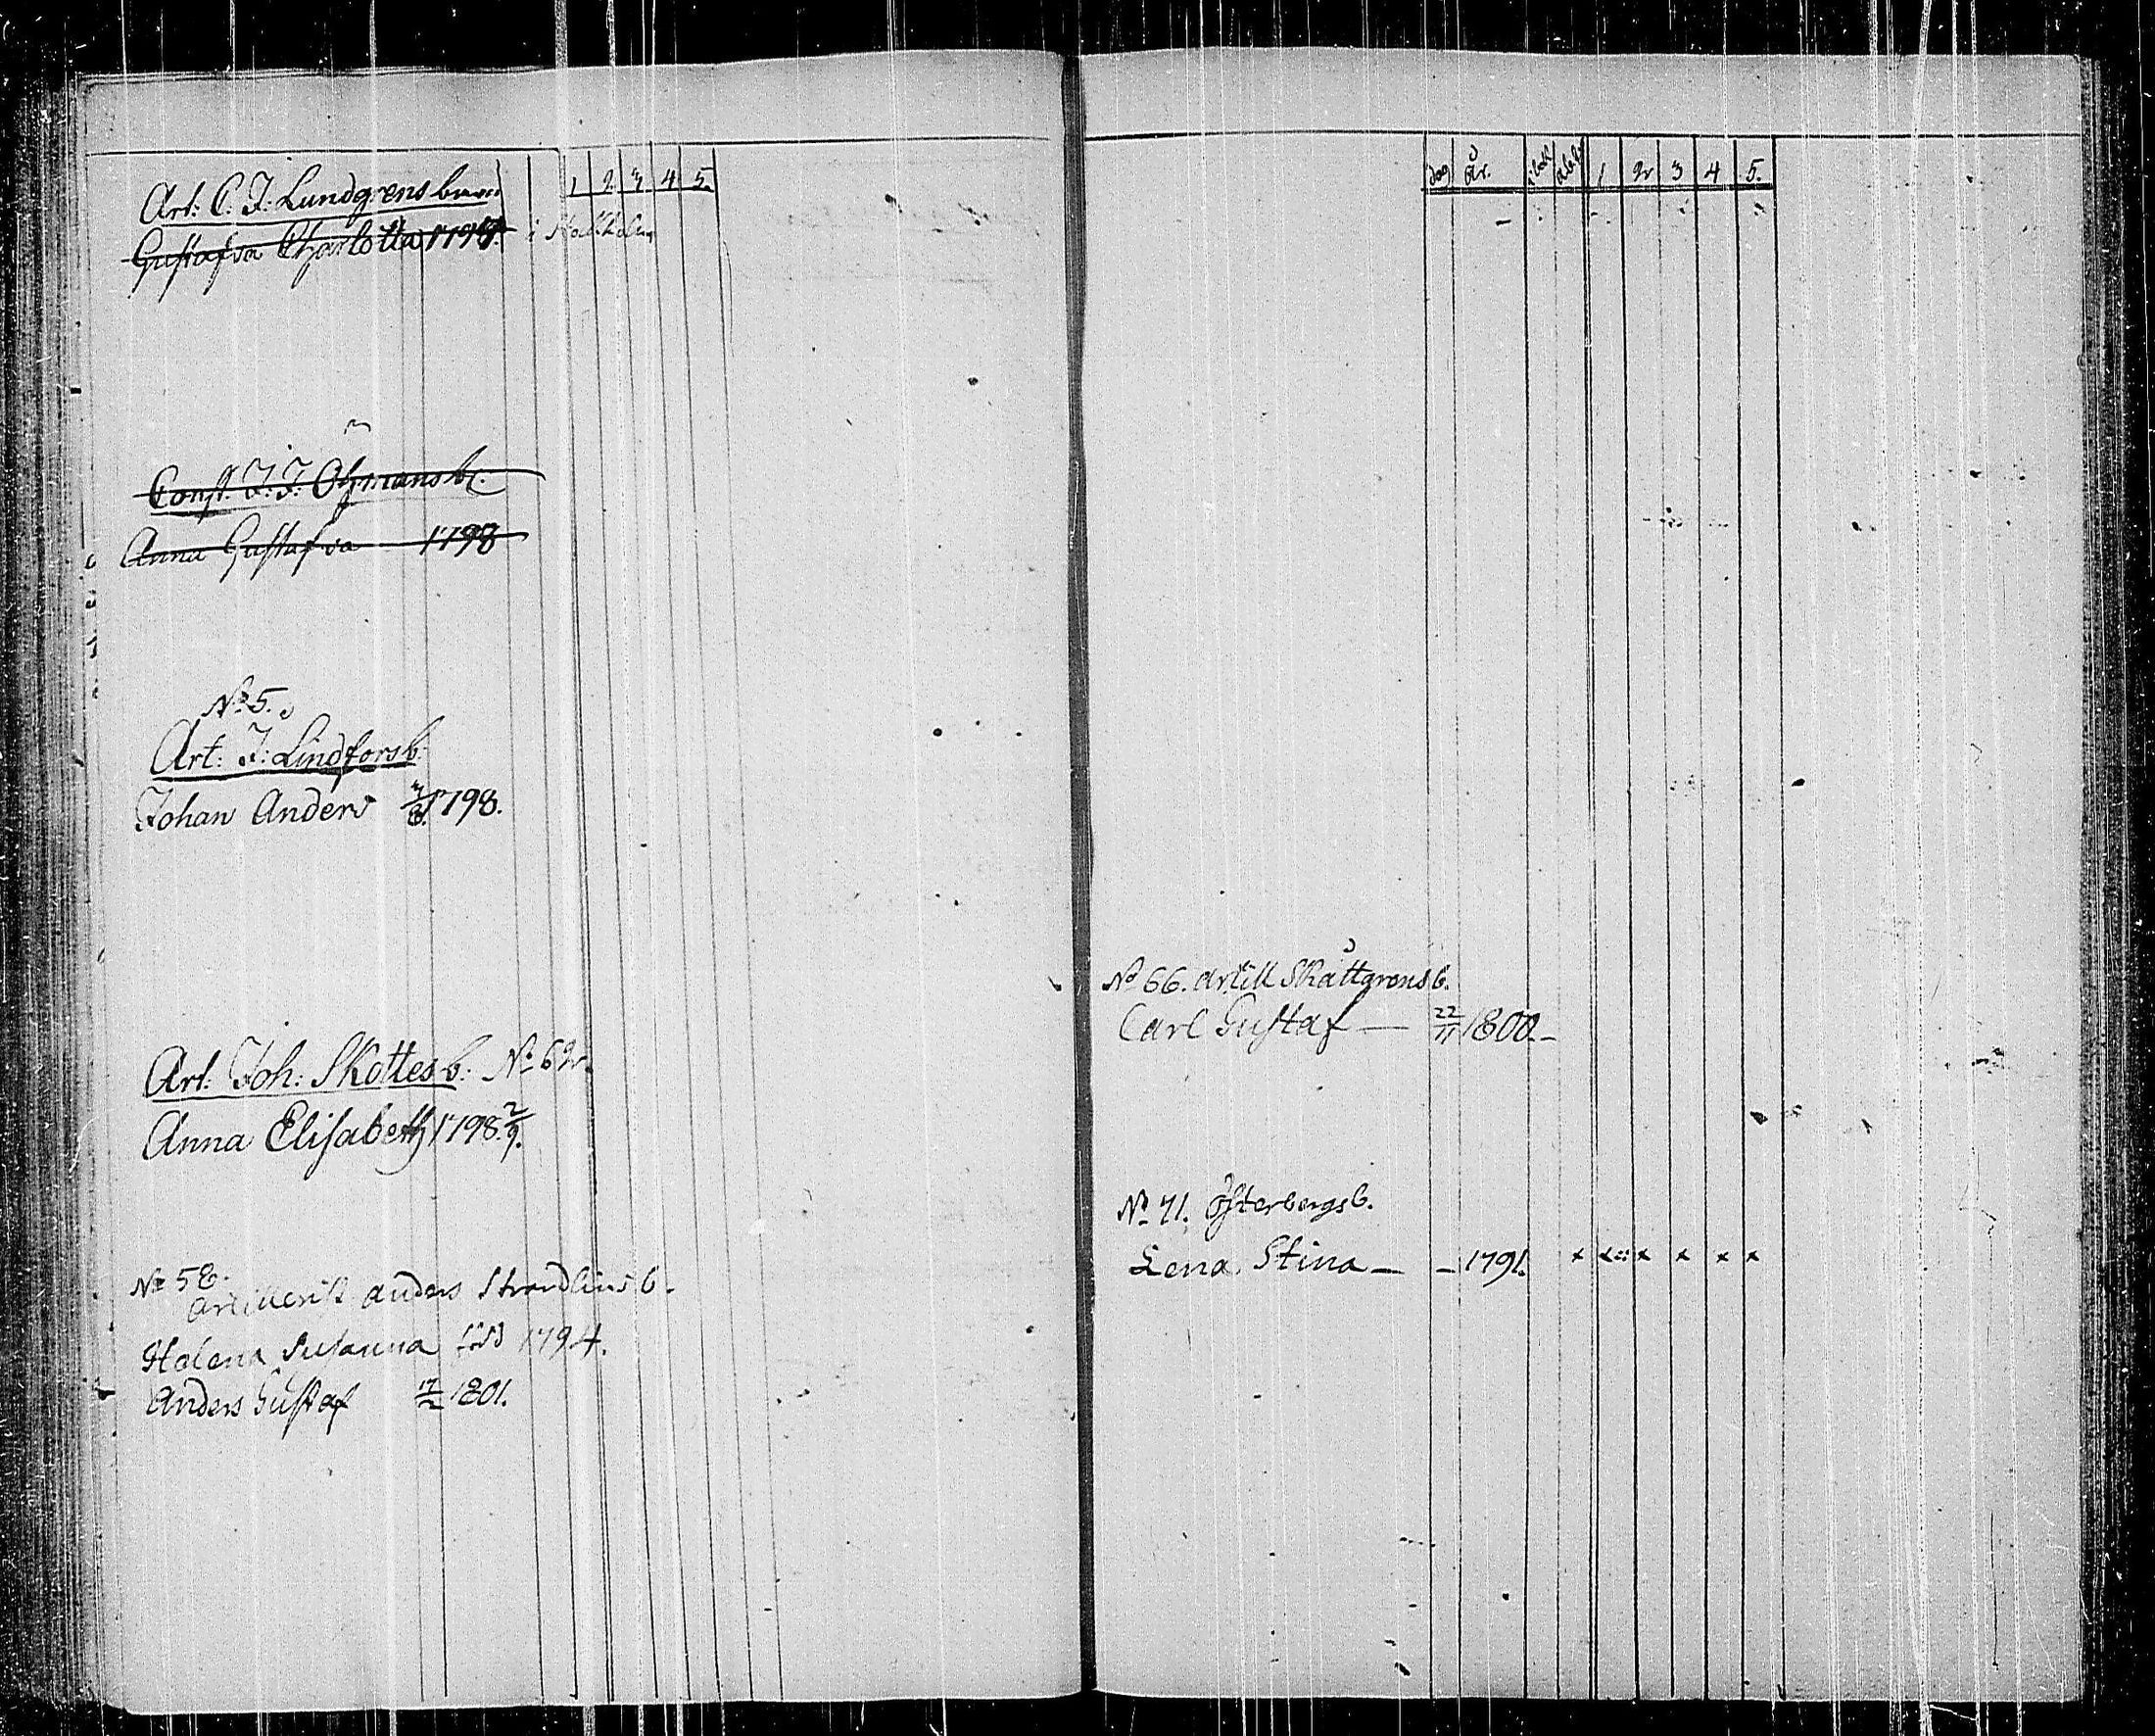 1 2 3 4 5.
Art: C. J: Lundgrens barn
Gustafva Charlotta 1794. i Stockholm
Const. J: J: Öhmans b:
Anna Gustafva 1798
No 5.
Art: J: Lindfors b:
Johan Anders 7/8. 1798.
Art: Joh: Skottes b: No 62.
Anna Elisabeth 1798. 2/9.
No 58.
Artillerist Anders Strandlins b.
Helena Susanna född 1794.
Anders Gustaf 17/2 1801.
dag År. i bok 1 2 3 4 5.
No 66. Artill Skåttgrens b.
Carl Gustaf — 22/11 1800. –
No 71. Österbergs b.
Lena Stina — – 1791. x x :: x x x x